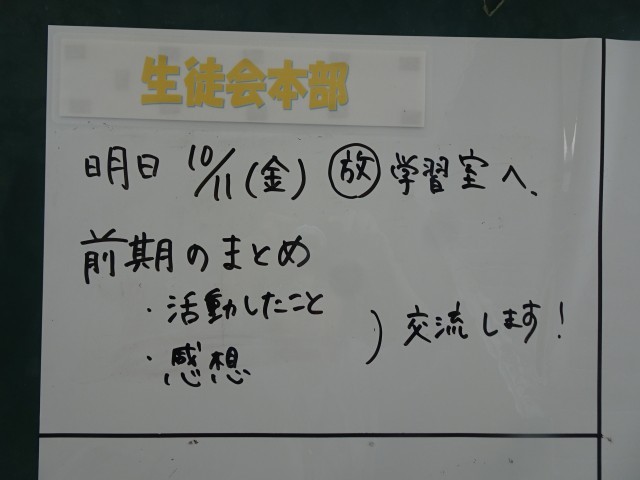 生徒会本部
明日 10/11(金) 放 学習室へ、
前期のまとめ
・活動したこと
・感想
) 交流します!